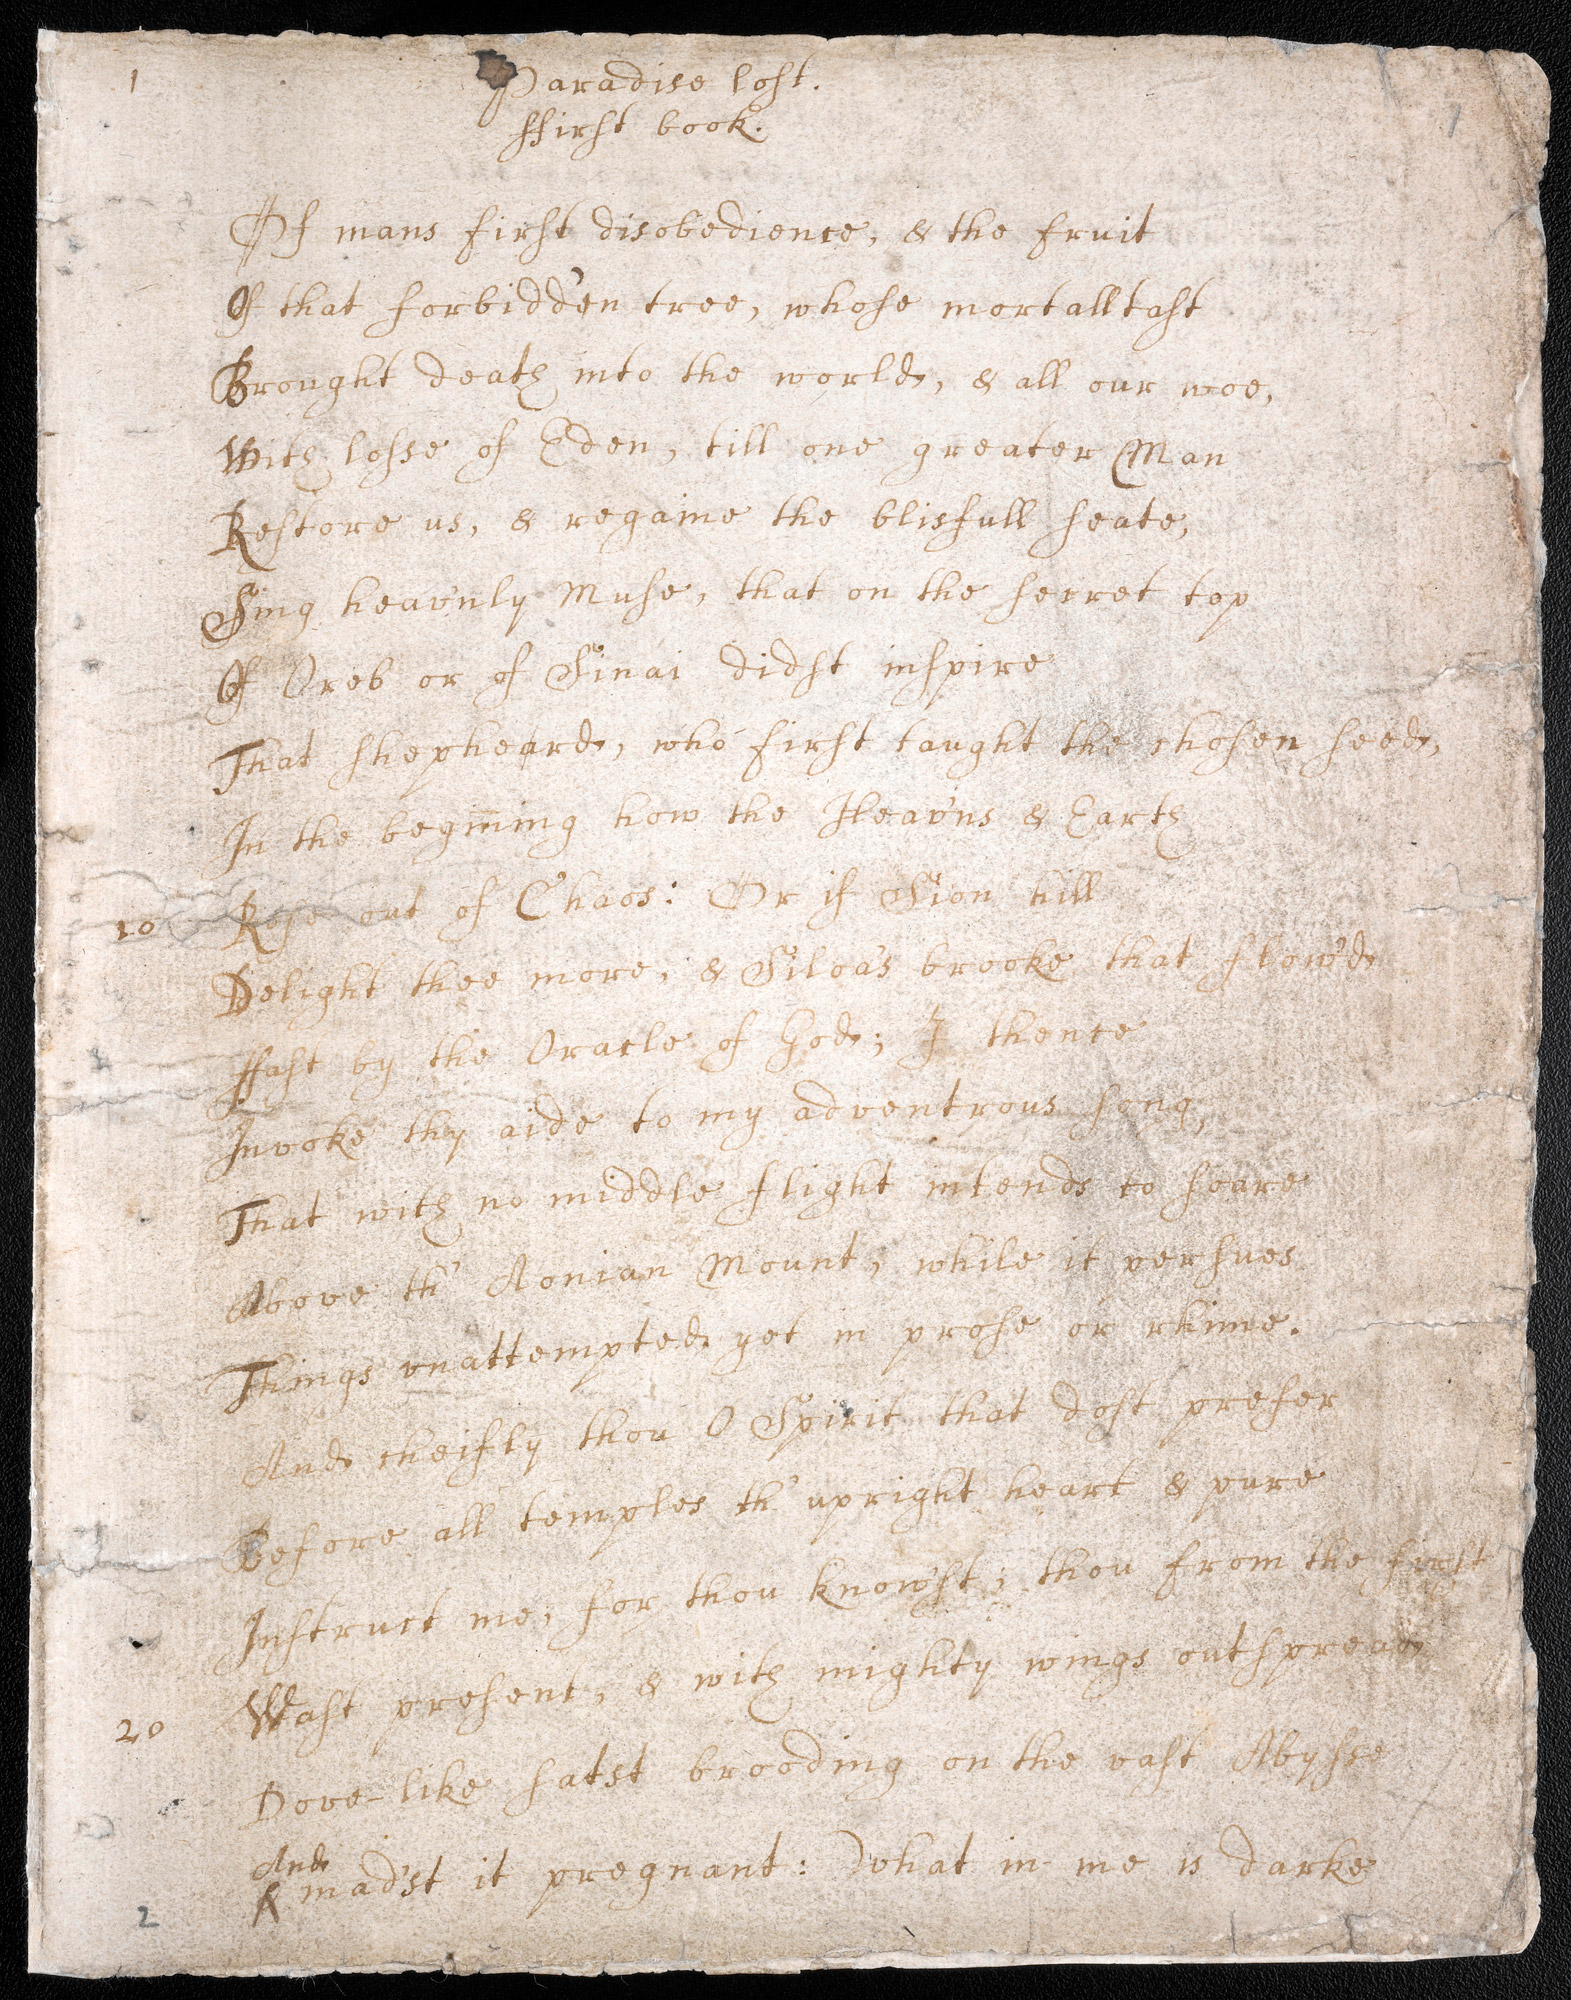 1
Paradise lost.
ffirst book.
1
Of mans first disobedience, & the fruit
Of that forbidd'en tree, whose mortall tast
Brought death into the world, & all our woe,
With losse of Eden, till one greater Man
Restore us, & regaine the blisfull seate,
Sing heav'nly Muse, that on the secret top
Of Oreb or of Sinai didst inspire
That shepheard, who first taught the chosen seed,
In the begiñing how the Heav'ns & Earth
10 Rose out of Chaos: Or if Sion hill
Delight thee more, & Siloa's brooke that flow'd
ffast by the Oracle of God; I thence
Invoke thy aide to my adventrous song,
That with no middle flight intends to soare
Above th' Aonian Mount, while it persues
Things unattempted yet in prose or rhime.
And cheifly thou O Spirit that dost prefer
Before all temples th' upright heart & pure
Instruct me, for thou know'st; thou from the first
20 Wast present, & with mighty wings outspread
Dove-like satst brooding on the vast Abysse
And
& mad'st it pregnant: What in me is darke
2